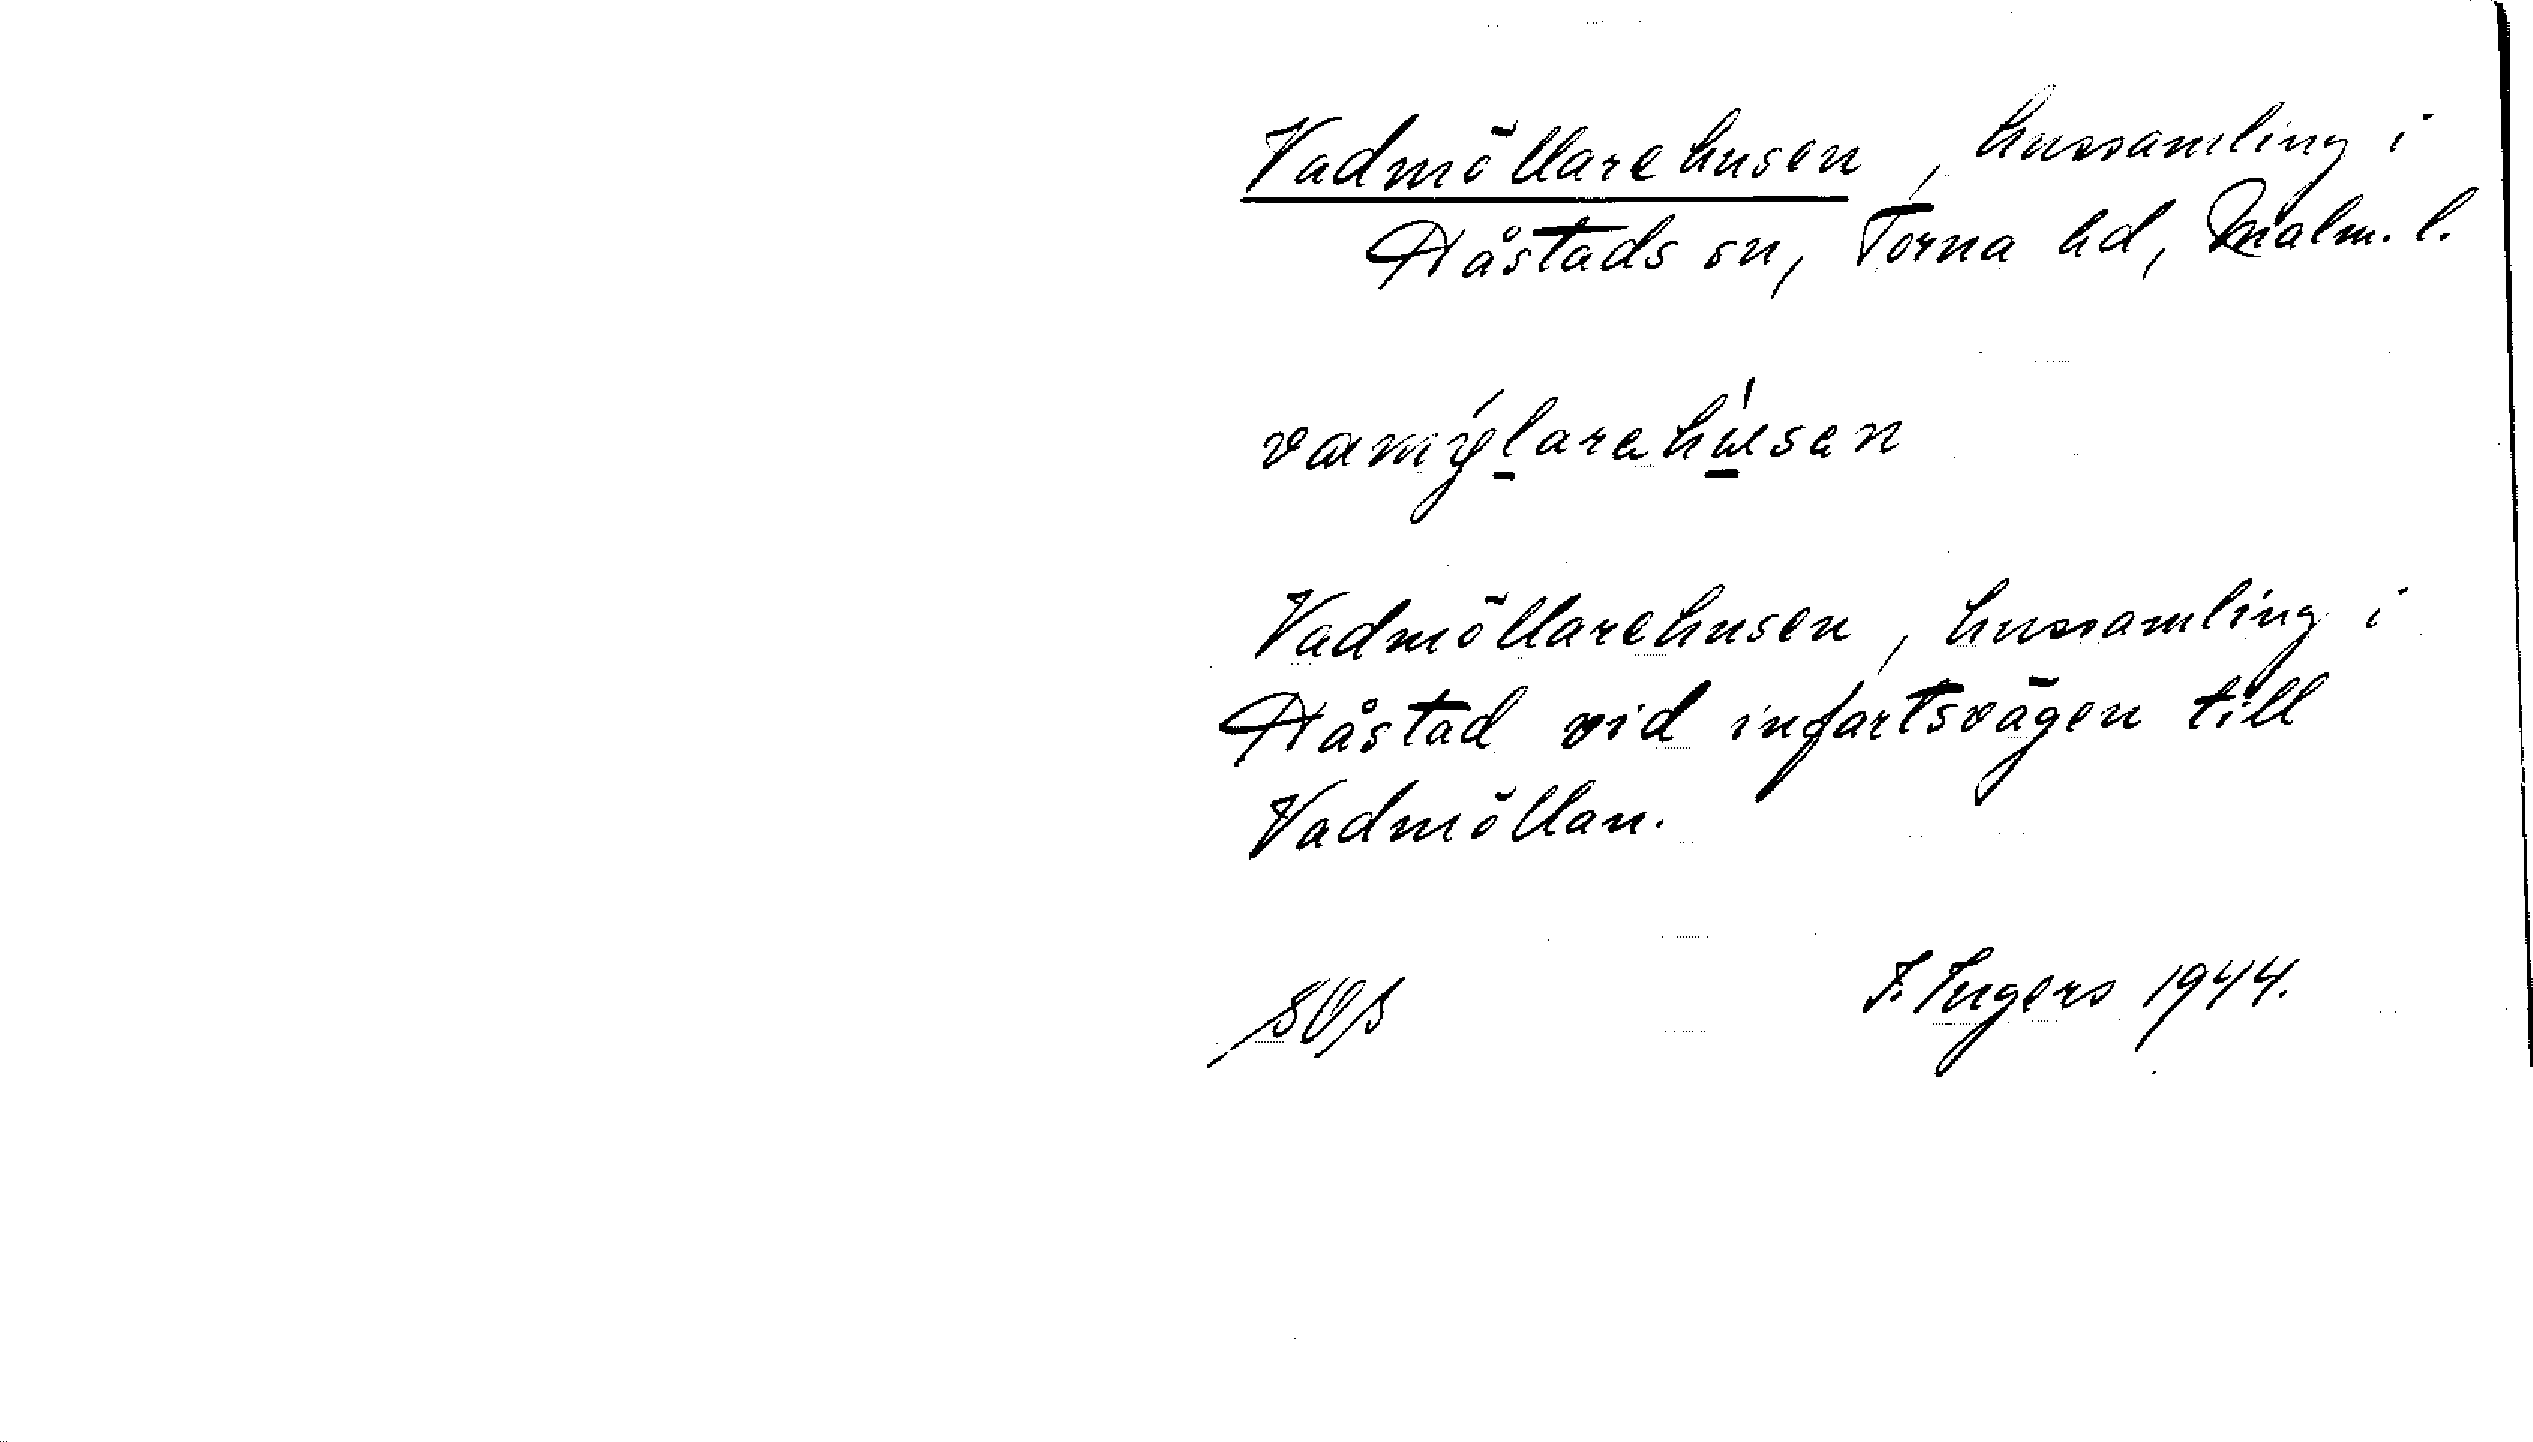 Vadmöllarehusen, hussamling i
Håstads sn, Torna hd, Malm. l.
Vadmöllarehusen, hussamling i
Håstad vid infartsvägen till
Vadmöllan.
I. Ingers 1944.